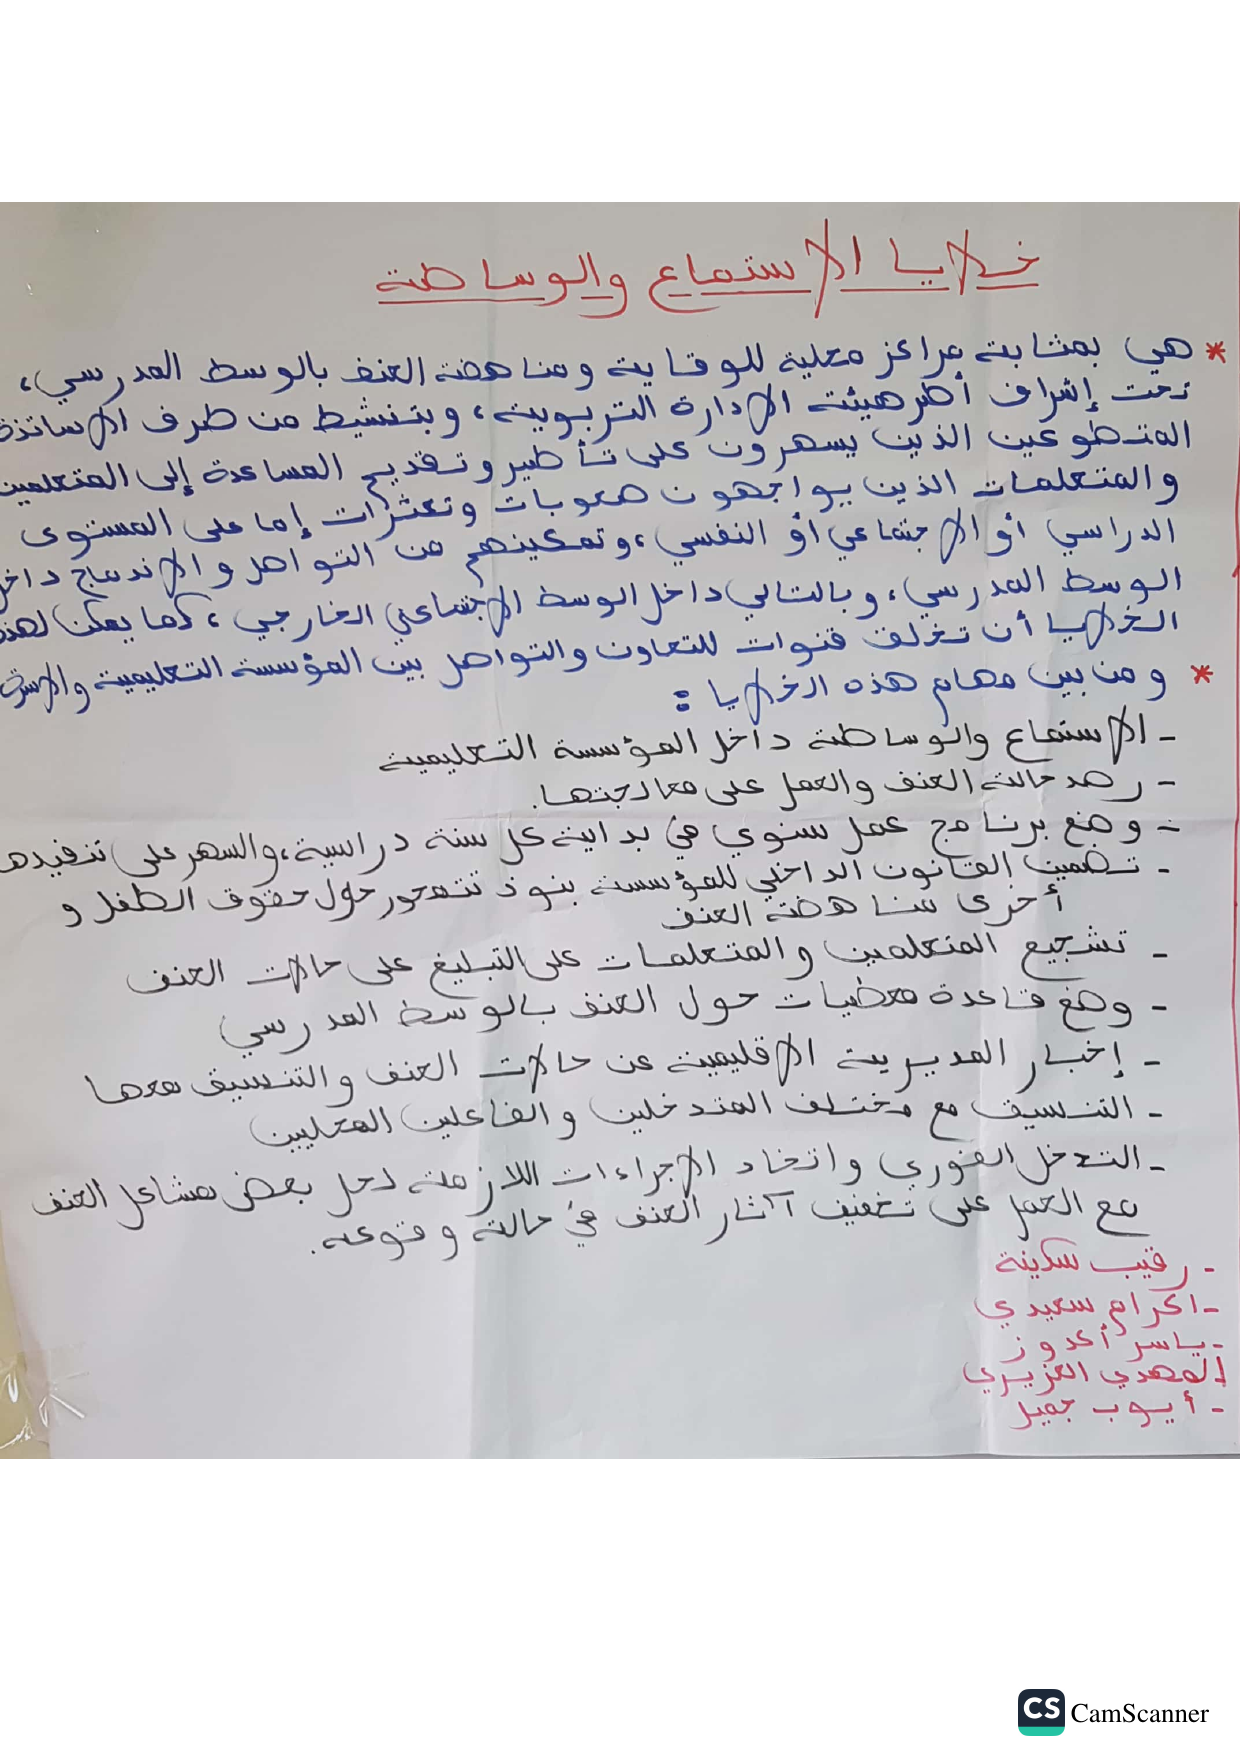 خلايا الاستماع والوساطة
* هي بمثابة مراكز محلية للوقاية ومناهضة العنف بالوسط المدرسي،
تحت إشراف أطر هيئة الإدارة التربوية، وبتنشيط من طرف الأساتذة
المتطوعين الذين يسهرون على تأطير وتقديم المساعدة إلى المتعلمين
والمتعلمات الذين يواجهون صعوبات وتعثرات إما على المستوى
الدراسي أو الاجتماعي أو النفسي، وتمكينهم من التواصل والاندماج داخل
الوسط المدرسي، وبالتالي داخل الوسط الاجتماعي الخارجي، كما يمكن لهذه
الخلايا أن تخلف قنوات للتعاون والتواصل بين المؤسسة التعليمية والأسرة
* ومن بين مهام هذه الخلايا :
- الاستماع والوساطة داخل المؤسسة التعليمية
- رصد حالة العنف والعمل على معالجتها.
- وضع برنامج عمل سنوي في بداية كل سنة دراسية، والسهر على تنفيذه
- تضمين القانون الداخلي للمؤسسة بنود تتمحور حول حقوق الطفل و
أخرى مناهضة العنف
- تشجيع المتعلمين والمتعلمات على التبليغ على حالات العنف
- وضع قاعدة معطيات حول العنف بالوسط المدرسي
- إخبار المديرية الإقليمية عن حالات العنف والتنسيق معها
- التنسيق مع مختلف المتدخلين والفاعلين المحليين
- التدخل الفوري واتخاد الإجراءات اللازمة لحل بعض مشاكل العنف
مع العمل على تخفيف آثار العنف في حالة وقوعه.
- رقيب سكينة
- اكرام سعيدي
- ياسر أكدوز
المهدي العزيزي
- أيوب جميل
CS CamScanner